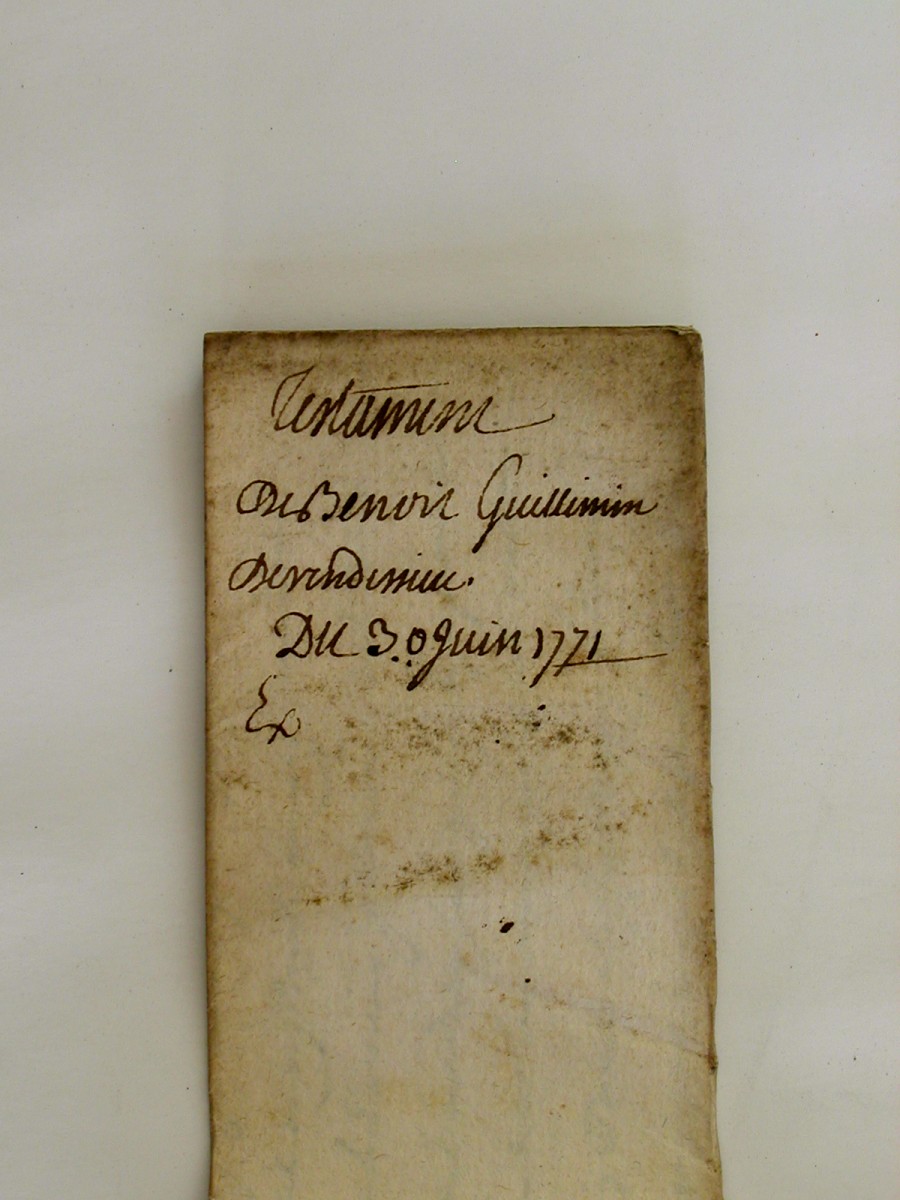 Testament
De Benoit Guillimin
De vendenieu.
Du 30 Juin 1771
Ex